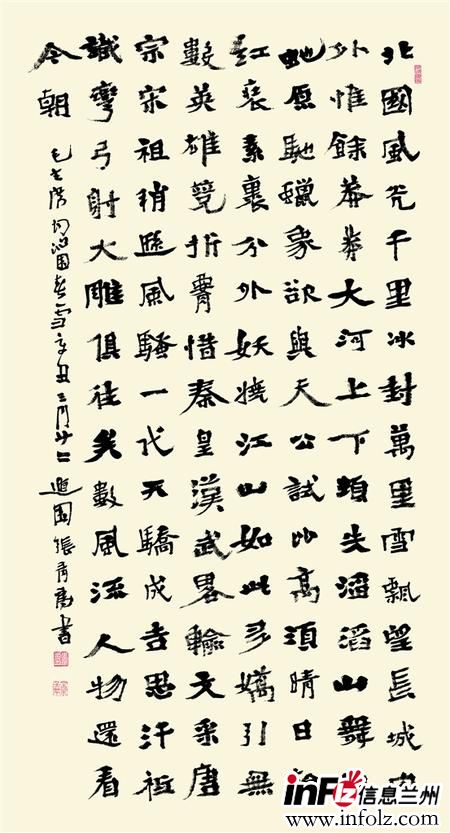 北國風光千里冰封萬里雪飄望長城内
外惟餘莽莽大河上下頓失滔滔山舞
虵原馳蠟象欲與天公試比高須晴日
紅裝素裹分外妖嬈江山如此多嬌引無
數英雄競折腰惜秦皇漢武畧輸文采唐
宗宋祖稍遜風騷一代天驕成吉思汗祗
識彎弓射大雕俱往矣數風流人物還看
今朝
毛主席詞沁園春雪辛丑三月廿二 園張書
infolz 信息兰州
www.infolz.com